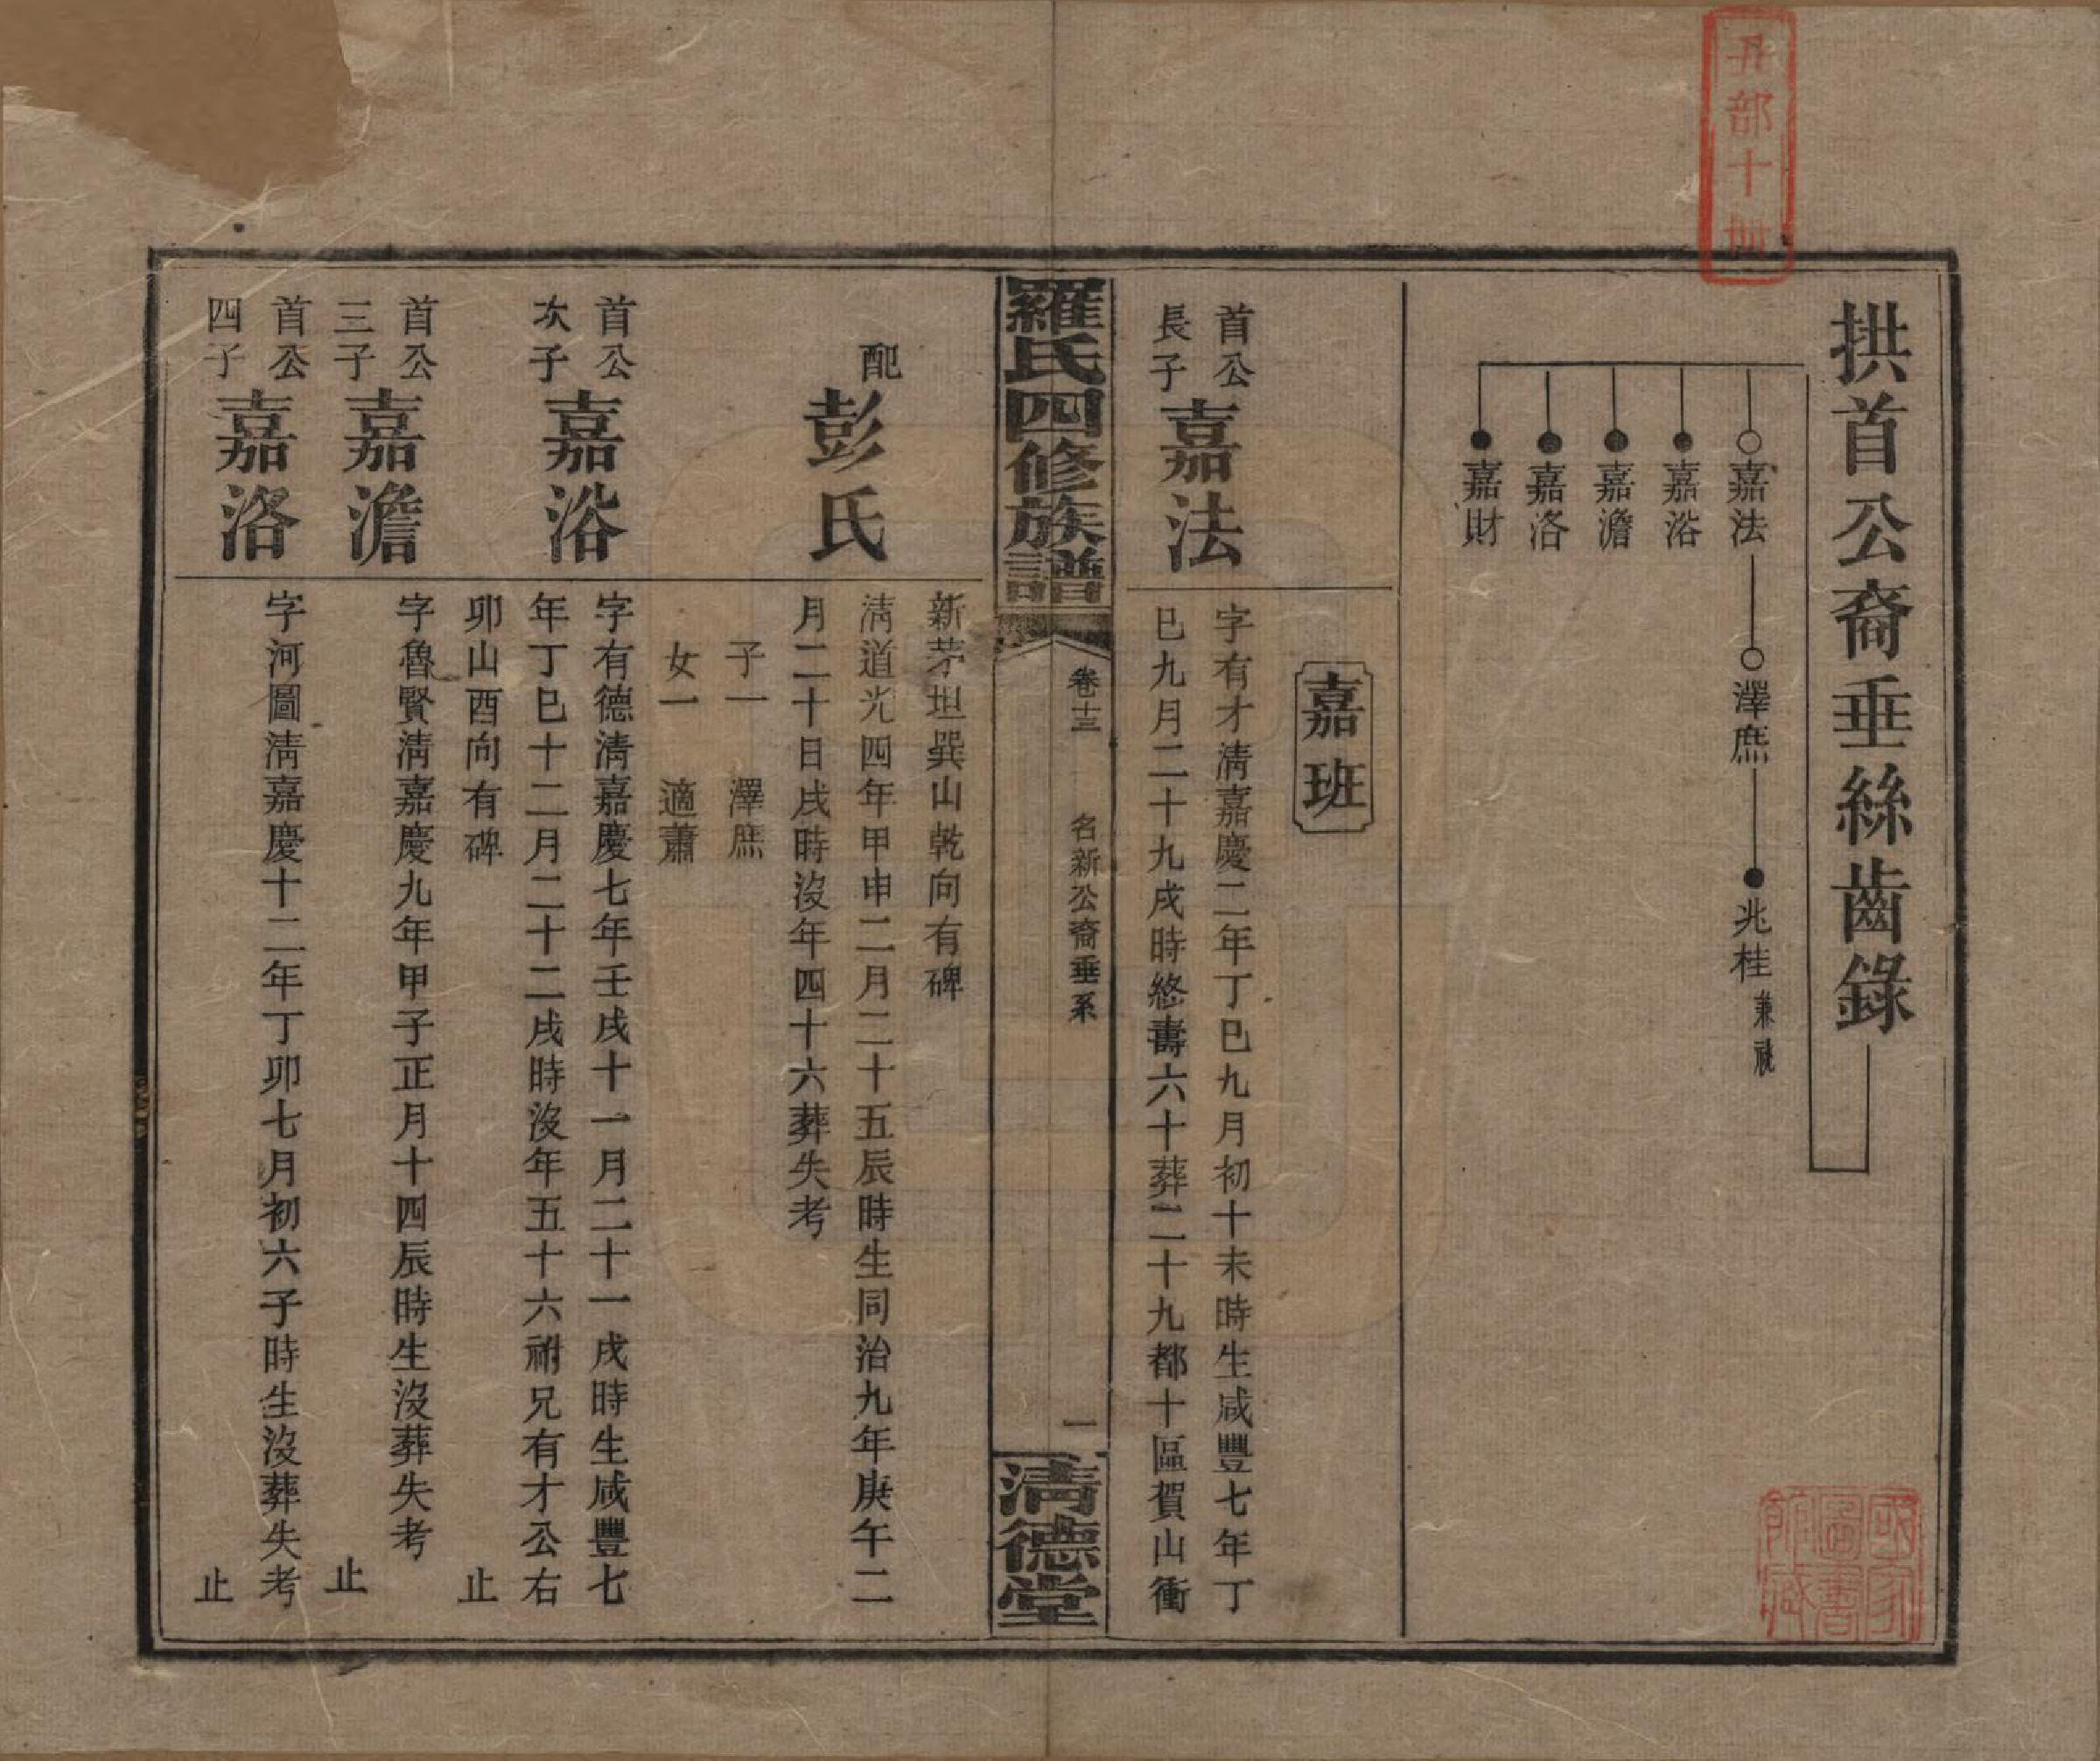 拱首公裔垂絲齒錄
嘉法
澤庶
兆桂兼祧
嘉浴
嘉澹
嘉洛
嘉財
嘉班
首公長子
嘉法
字有才淸嘉慶二年丁巳九月初十未時生咸豐七年丁
巳九月二十九戌時終壽六十葬二十九都十區賀山衝
羅氏四修族譜
卷十三
名新公裔垂系
一
淸德堂
新茅坦巽山乾向有碑
配
彭氏
淸道光四年甲申二月二十五辰時生同治九年庚午二
月二十日戌時沒年四十六葬失考
子一 澤庶
女一 適蕭
首公次子
嘉浴
字有德淸嘉慶七年壬戌十一月二十一戌時生咸豐七
年丁巳十二月二十二戌時沒年五十六祔兄有才公右
卯山酉向有碑 止
首公三子
嘉澹
字魯賢淸嘉慶九年甲子正月十四辰時生沒葬失考
止
首公四子
嘉洛
字河圖淸嘉慶十二年丁卯七月初六子時生沒葬失考
止
五部十
國家圖書館藏